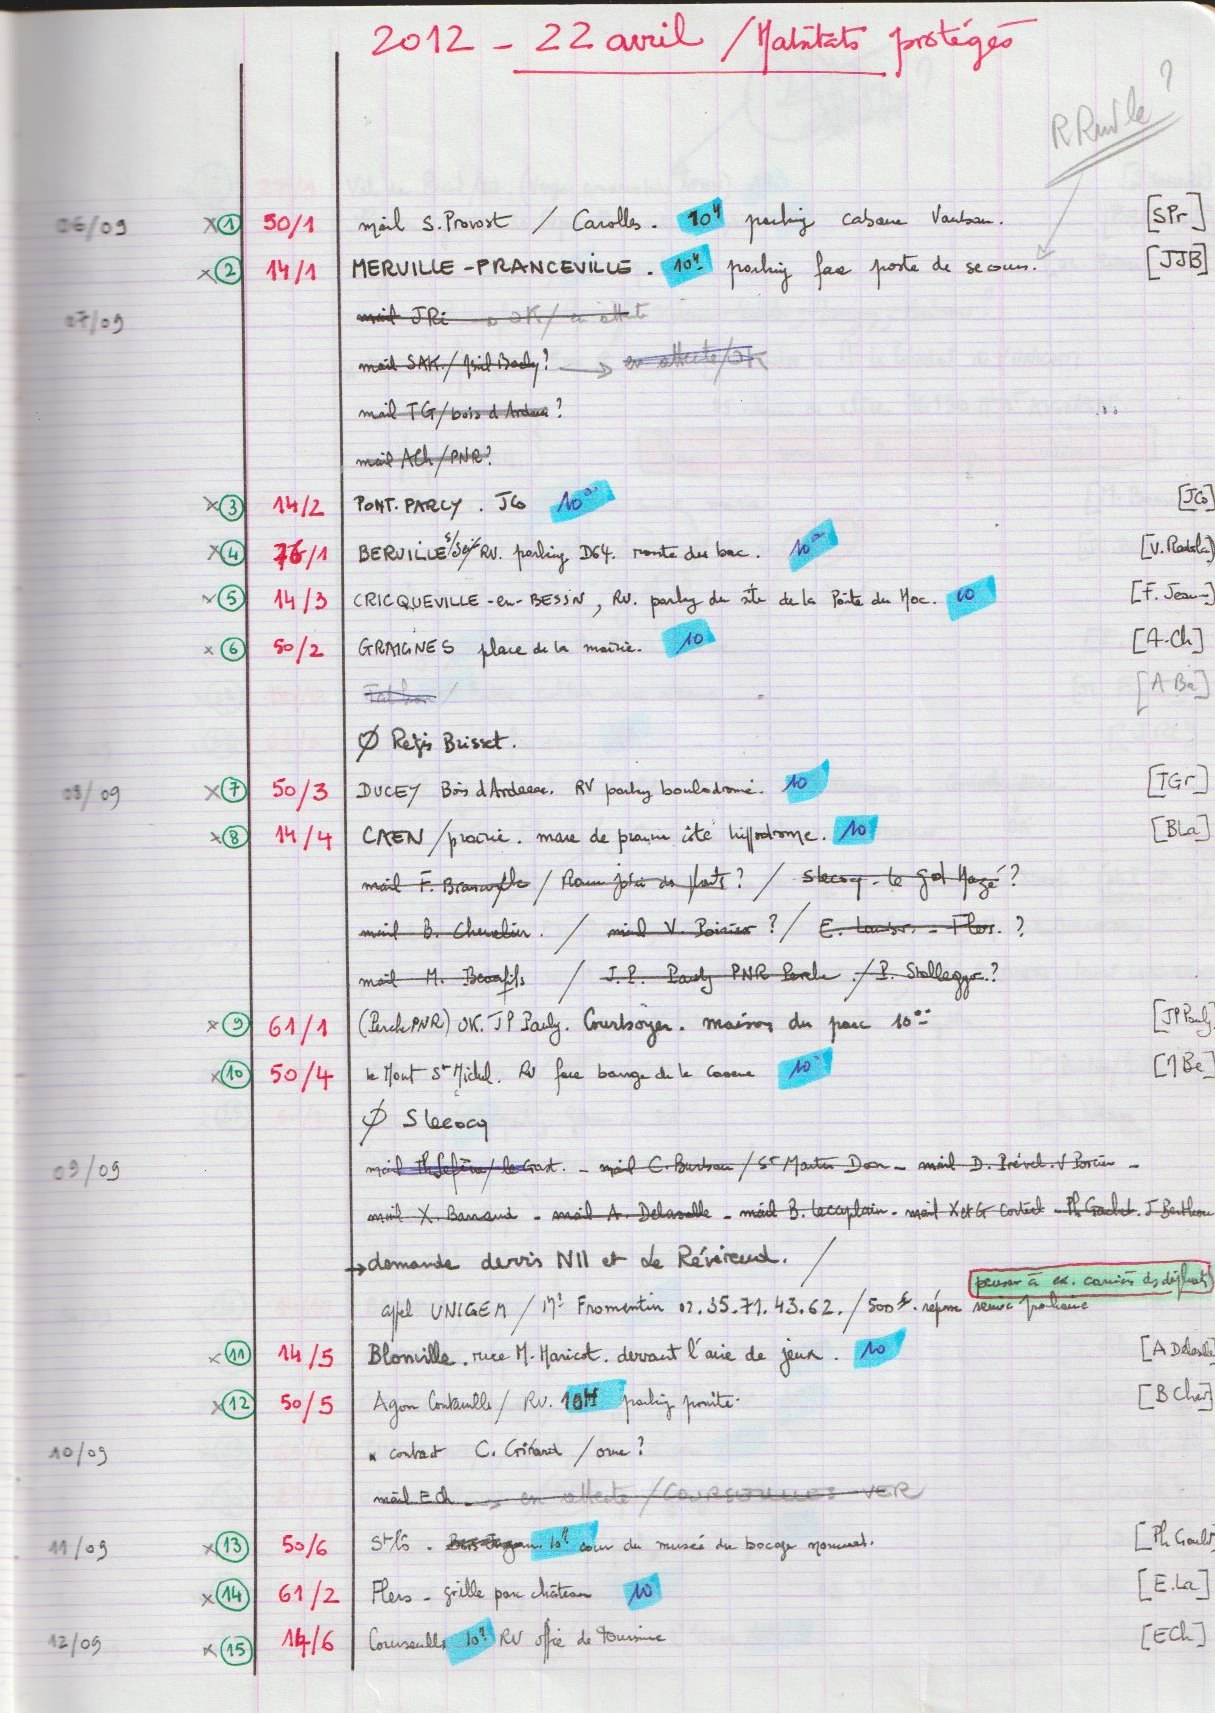 2012 - 22 avril / Habitats protégés
?
06/09 x 1 50/1 mail S. Provost / Carolles. 10H parking cabane Vauban. [SPr]
x 2 14/1 MERVILLE-FRANCEVILLE. 10H parking face poste de secours. [JJB]
07/09 mail JRi OK / en attente
mail SAK / ? → en attente/OK
mail TG / bois d'Ardenne ?
mail ACh / PNR ?
x 3 14/2 PONT-FARCY. JCo 10 [JCo]
x 4 76/1 BERVILLE s/Seine RV. parking D64. route du bac. 10
x 5 14/3 CRICQUEVILLE-en-BESSIN, RV. parking du site de la Pointe du Hoc. 10 [F. Jean]
x 6 50/2 GRAIGNES place de la mairie. 10 [A.Ch]
[A Ba]
Ø Régis Brisset.
08/09 x 7 50/3 DUCEY Bois d'Ardenne. RV parking boulodrome. 10 [TGr]
x 8 14/4 CAEN / prairie. mare de côté hippodrome. 10 [BLa]
mail F. / ? / Slecoq - le ?
mail B. Chevalier. / mail V. Poirier ? / E. - Flers. ?
mail M. Beaufils / J.P. Pauly PNR Perche / P. Stallegger ?
x 9 61/1 (Perche PNR) OK. JP Pauly. Courboyer. maison du parc 10 [JP Pauly]
x 10 50/4 le Mont St Michel. RV face barrage de la Caserne 10 [MBe]
Ø Slecocq
09/09 mail / le Gast. - mail C. / St Martin Don - mail D. Prével. V Poirier -
mail X. - mail A. Delasalle - mail B. Lecaplain - mail X et G - Ph Gachet. J
→ demande devis NII et Le Révérend. /
penser à ex. carrières
appel UNIGEM / Mr Fromentin 02.35.71.43.62. / 500 €. réponse
x 11 14/5 Blonville. rue M. Haricot. devant l'aire de jeux. 10 [A Delasalle]
x 12 50/5 Agon Coutainville / RV. 10H parking pointe. [B Chev]
10/09 x contact C. Girard / orne ?
mail ECh en attente / COURSEULLES VER
11/09 x 13 50/6 St Lô. 10H cour du musée du bocage normand.
x 14 61/2 Flers - grille parc château 10 [E.La]
12/09 x 15 14/6 Courseulles 10H RV office de tourisme [ECh]